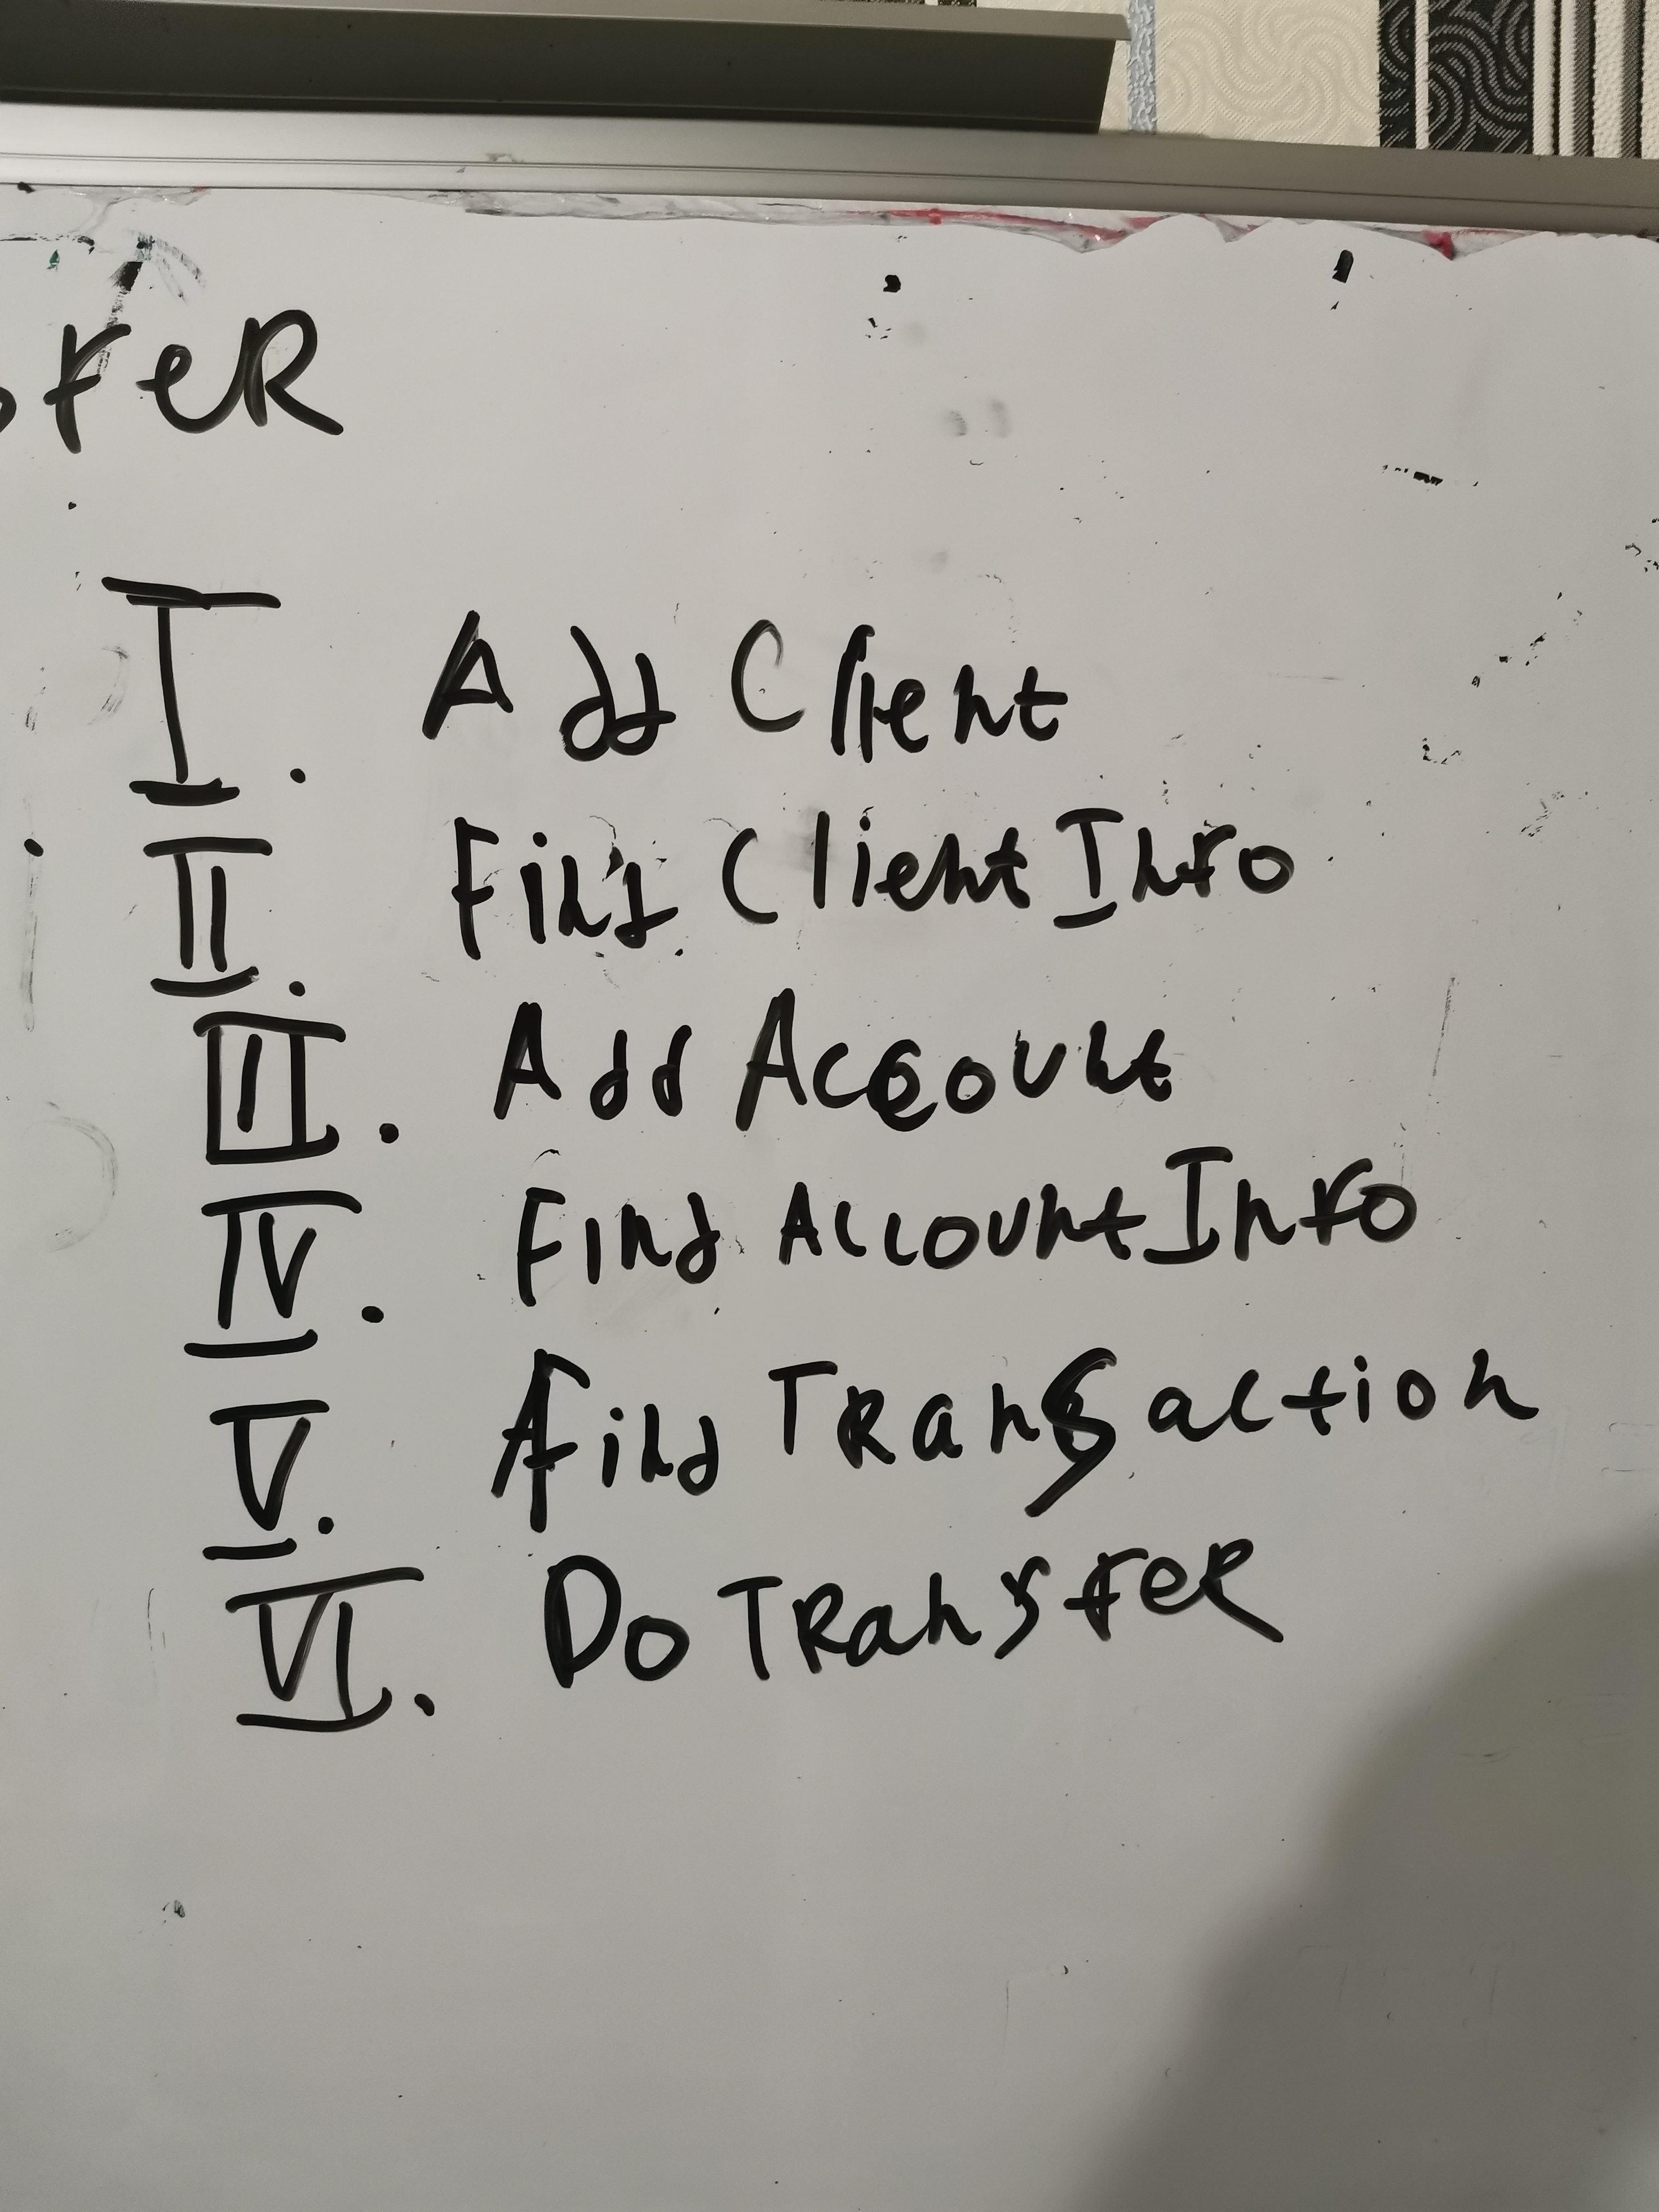 sfeR
I. Add Client
II. Find Client Info
III. Add Account
IV. Find Account Info
V. Find TRansaction
VI. Do TRansfeR